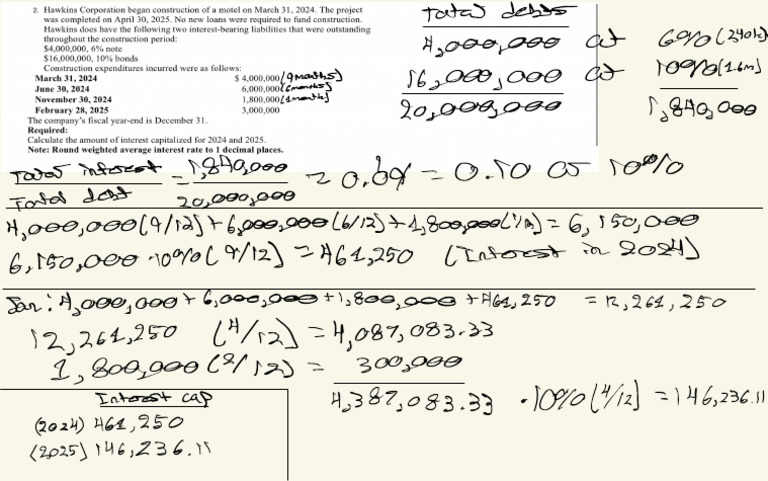 2. Hawkins Corporation began construction of a motel on March 31, 2024. The project
was completed on April 30, 2025. No new loans were required to fund construction.
Hawkins does have the following two interest-bearing liabilities that were outstanding
throughout the construction period:
$4,000,000, 6% note
$16,000,000, 10% bonds
Construction expenditures incurred were as follows:
March 31, 2024 $ 4,000,000 (9 months)
June 30, 2024 6,000,000 (6 months)
November 30, 2024 1,800,000 (1 month)
February 28, 2025 3,000,000
The company's fiscal year-end is December 31.
Required:
Calculate the amount of interest capitalized for 2024 and 2025.
Note: Round weighted average interest rate to 1 decimal places.
Total debts
4,000,000 at 6% (240k)
16,000,000 at 10% (1.6m)
20,000,000 1,840,000
Total interest = 1,840,000 = 0.09 = 0.10 or 10%
Total debt 20,000,000
4,000,000 (9/12) + 6,000,000 (6/12) + 1,800,000 (1/12) = 6,150,000
6,150,000 · 10% (9/12) = 461,250 (Interest in 2024)
Jan: 4,000,000 + 6,000,000 + 1,800,000 + 461,250 = 12,261,250
12,261,250 (4/12) = 4,087,083.33
1,800,000 (2/12) = 300,000
4,387,083.33 · 10% (4/12) = 146,236.11
Interest cap
(2024) 461,250
(2025) 146,236.11